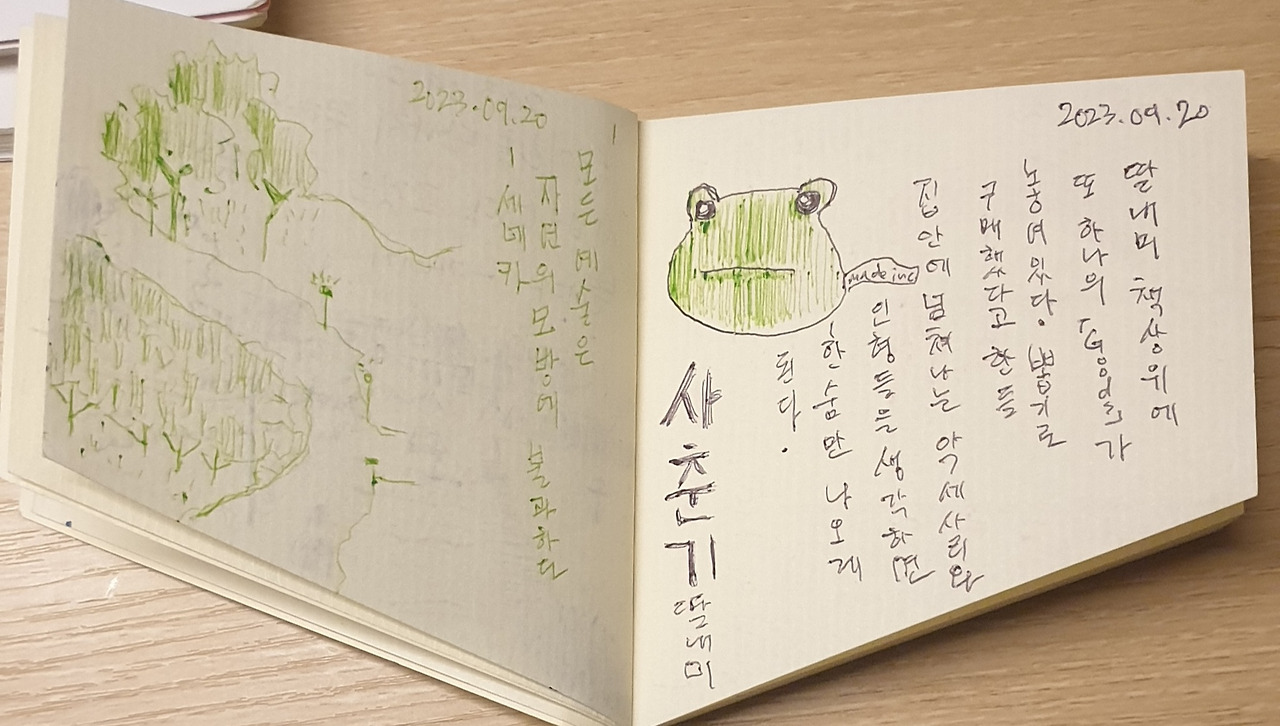 2023.09.20
모든 예술은
자연의 모방에 불과하다
- 세네카
2023.09.20
딸내미 책상위에
또 하나의 「Goods」가
놓여있다. 뽑기로
구매했다고 한들
집안에 넘쳐나는 악세사리와
인형들을 생각하면
한숨만 나오게
된다.
made in c
사춘기 딸내미